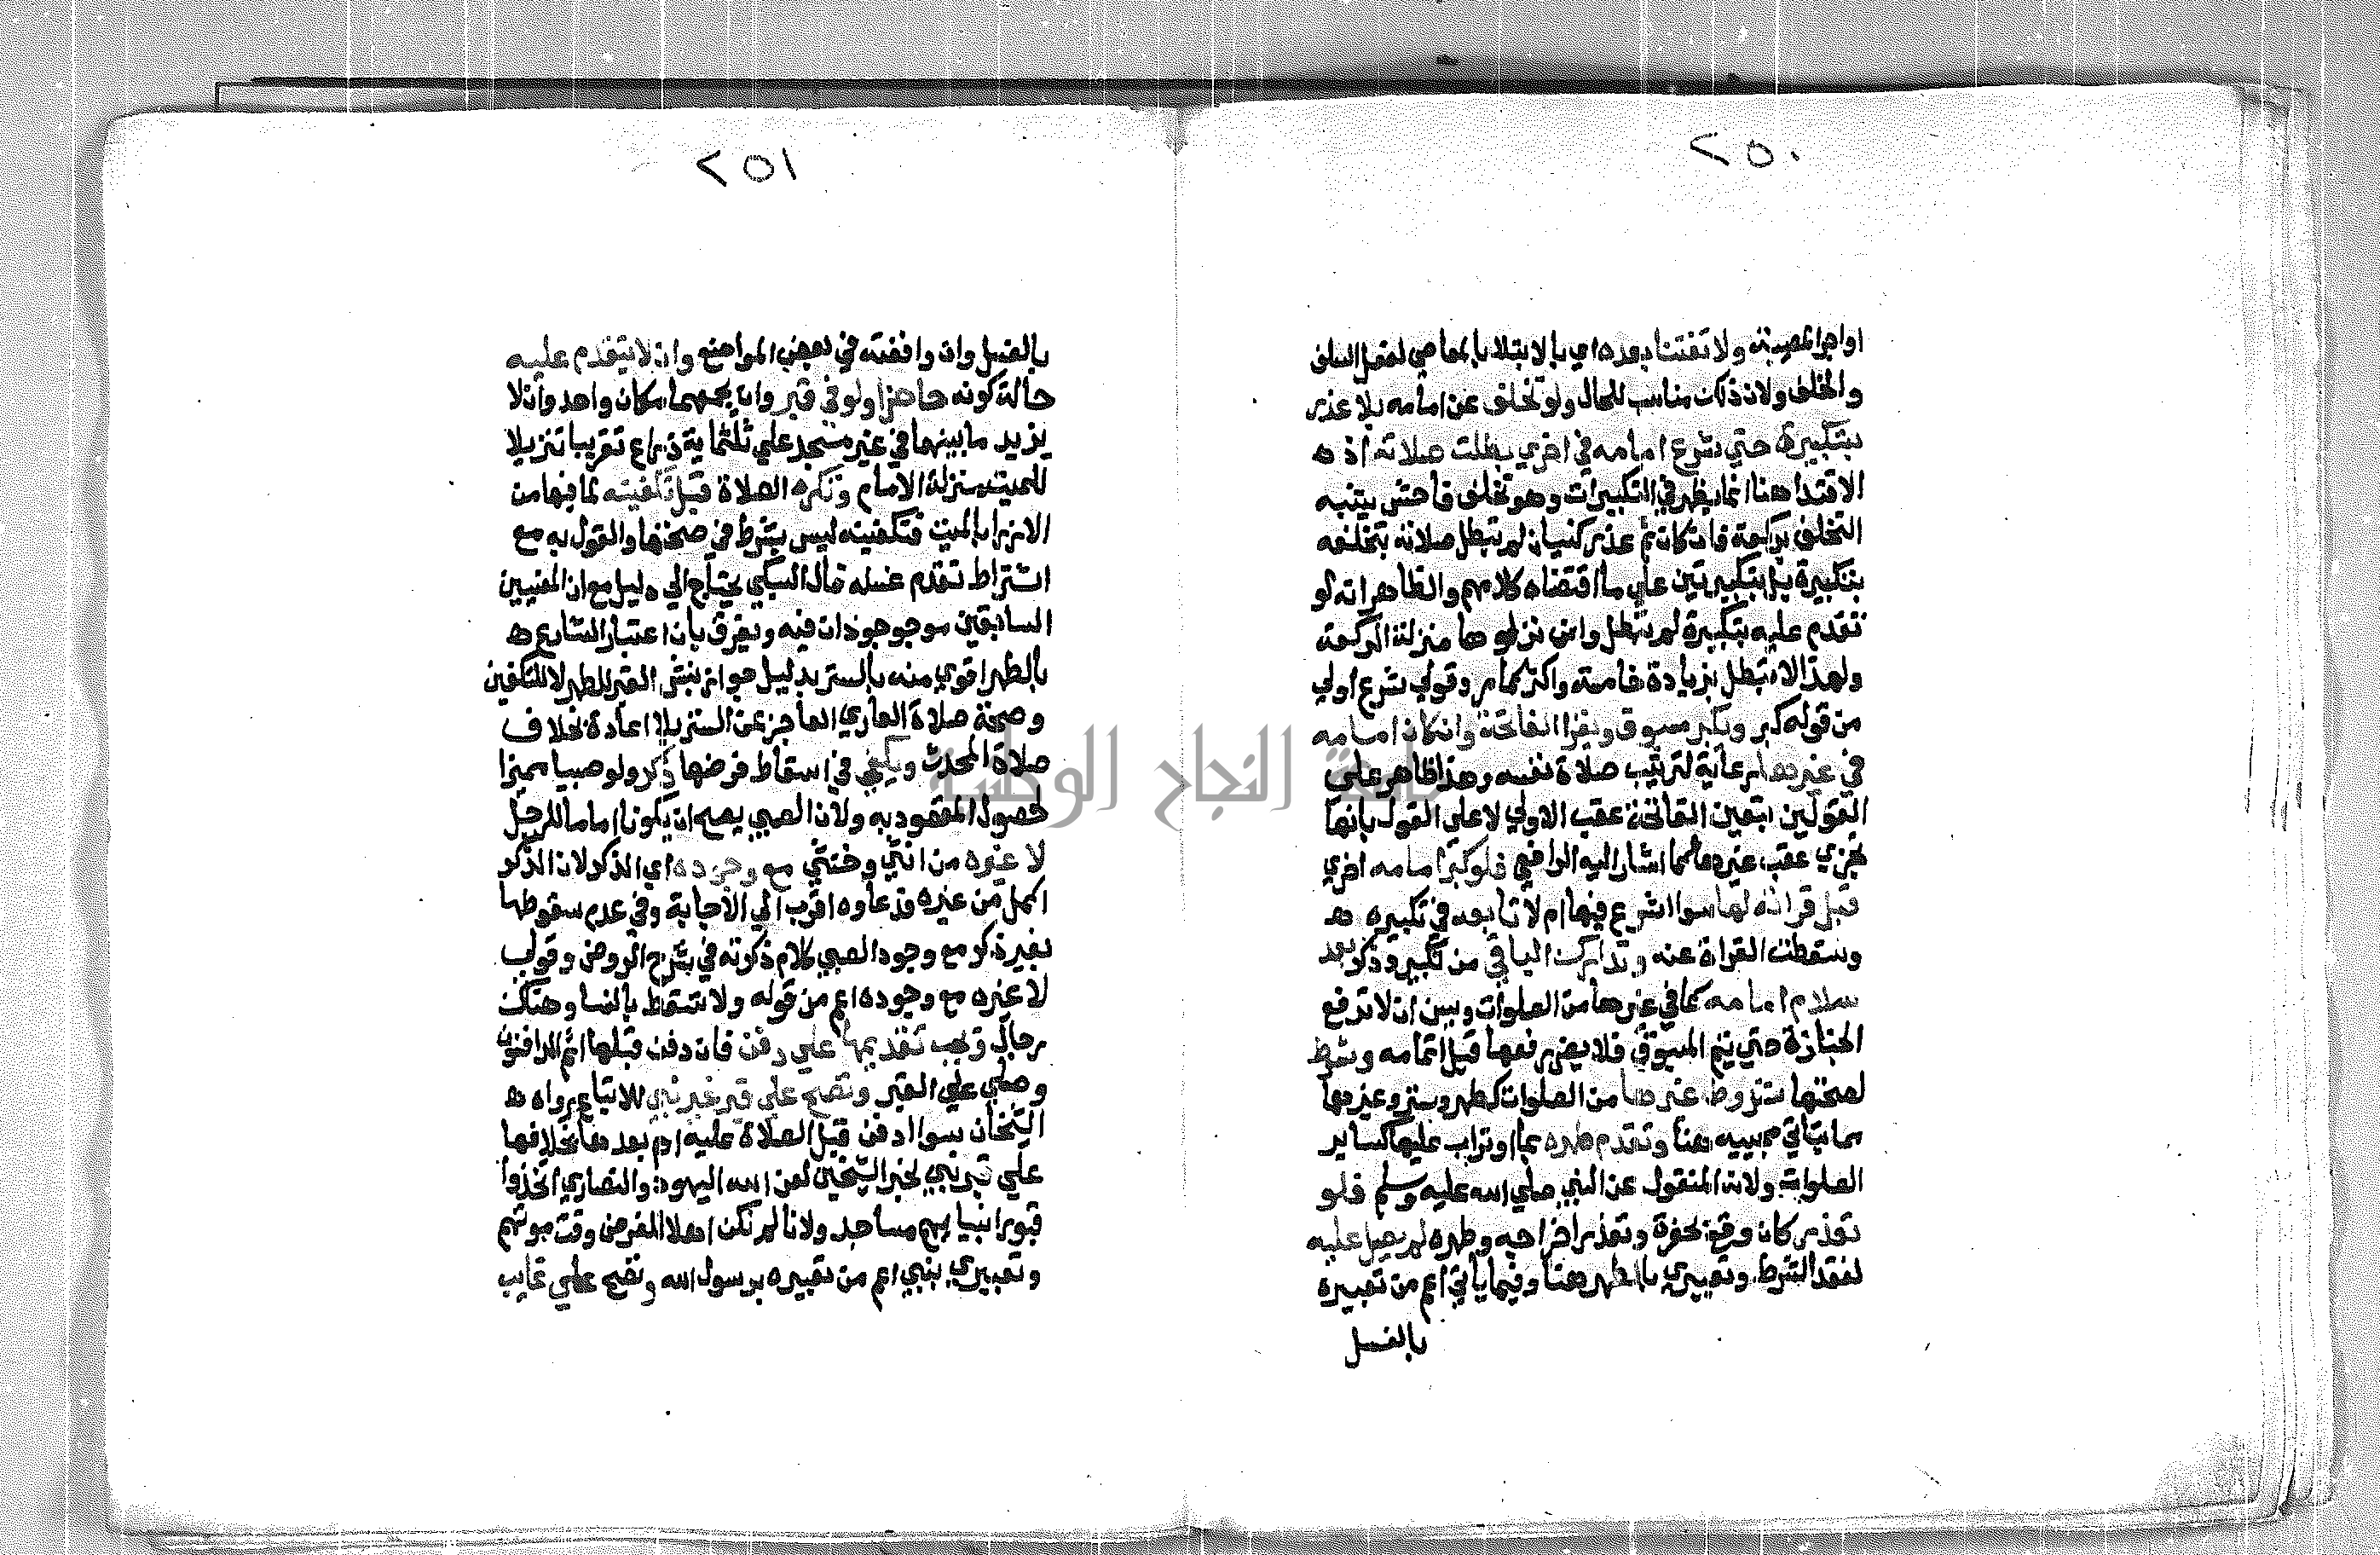 ٢٥٠
او اجر المصيبة ولا تفتنا بعده اي بالابتلا بالمعاصي لفعل السلف
والخلف ولان ذلك مناسب للحال ولو تخلف عن امامه بلا عذر
بتكبيرة حتي شرع امامه في اخري بطلت صلاته اذ ه
الاقتدا هنا انما يظهر في التكبيرات وهو تخلف فاحش يشبه
التخلف بركعة فان كان ثم عذر كنسيان لم تبطل صلاته بتخلفه
بتكبيرة بل بتكبيرتين علي ما اقتضاه كلامهم والظاهر انه لو
تقدم عليه بتكبيرة لم تبطل وان نزلوها منزلة الركعة
ولهذا لا تبطل بزيادة خامسة واكثر كما مر وقولي شرع اولي
من قوله كبر ويكبر مسبوق ويقرا الفاتحة وان كان امامه
في غيرها رعاية لترتيب صلاة نفسه وهذا ظاهر علي
القولين بتعين الفاتحة عقب الاولي لا علي القول بانها
تجزي عقب غيرها كما اشار اليه الرافعي فلو كبر امامه اخري
قبل قراته لها سوا اشرع فيها ام لا تابعه في تكبيره ه
وسقطت القراة عنه وتدارك الباقي من تكبير وذكر بعد
سلام امامه كما في غيرها من الصلوات وسن ان لا ترفع
الجنازة حتي يتم المسبوق فلا يضر رفعها قبل اتمامه وشرط
لصحتها شروط غيرها من الصلوات كطهر وستر وغيرهما
مما يتاتي مجييه هنا وتقدم طهره بما او تراب عليها كساير
الصلوات ولان المنقول عن النبي صلي الله عليه وسلم فلو
تعذر كان وقع بحفرة وتعذر اخراجه وطهره لم يصل عليه
لفقد الشرط وتعبيري بالطهر هنا وفيما ياتي اعم من تعبيره
بالغسل
٢٥١
بالغسل وان وافقته في بعض المواضع وان لا يتقدم عليه
حالة كونه حاضرا ولو في قبر وان يجمعهما مكان واحد وان لا
يزيد ما بينهما في غير مسجد علي ثلثماية ذراع تقريبا تنزيلا
للميت منزلة الامام وتكره الصلاة قبل تكفينه لما فيها من
الازرا بالميت فتكفينه ليس بشرط في صحتها والقول به مع
اشتراط تقدم غسله قال السبكي يحتاج الي دليل مع ان المعنيين
السابقين موجوجودان فيه ويفرق بان اعتبار الشارع ه
بالطهر اقوي منه بالستر بدليل جواز نبش القبر للطهر لا للتكفين
وصحة صلاة العاري العاجز عن الستر بلا اعادة بخلاف
صلاة المحدث ويكفي في اسقاط فرضها ذكر ولو صبيا مميزا
لحصول المقصود به ولان الصبي يصح ان يكون اماما للرجل
لا غيره من انثي وخنثي مع وجوده اي الذكر لان الذكر
اكمل من غيره فدعاوه اقرب الي الاجابة وفي عدم سقوطها
بغير ذكر مع وجود الصبي كلام ذكرته في شرح الروض وقولي
لا غيره مع وجوده اعم من قوله ولا تسقط بالنسا وهناك
رجال ويجب تقديمها علي دفن فان دفن قبلها اثم الدافنون
وصلي علي القبر وتصح علي قبر غير نبي للاتباع رواه ه
الشيخان سوا ادفن قبل الصلاة عليه ام بعدها بخلافها
علي قبر نبي لخبر الشيخين لعن الله اليهود والنصاري اتخذوا
قبور انبيايهم مساجد ولانا لم نكن اهلا للفرض وقت موتهم
وتعبيري بنبي اعم من تعبيره برسول الله وتصح علي غايب
جامعة النجاح الوطنية